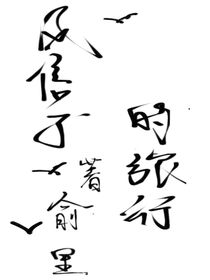 风信子
的旅行
著俞里